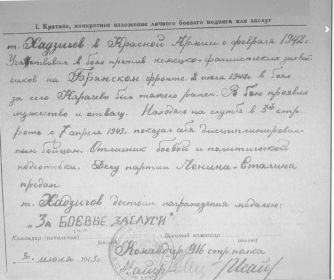 I. Краткое, конкретное изложение личного боевого подвига или заслуг
т. Хадзигов в Красной Армии с февраля 1942г.
Участвовал в боях против немецко-фашистских захват-
чиков на Брянском фронте. В июле 1943г. в боях
за село Карачево был тяжело ранен. В бою проявил
мужество и отвагу. Находясь на службе в 3ей стр.
роте с 7 апреля 1943. показал себя дисциплинирован-
ным бойцом. Отличник боевой и политической
подготовки. Делу партии Ленина-Сталина
предан.
т. Хадзигов достоин награждения медалью:
"За БОЕВЫЕ ЗАСЛУГИ"
Командир (начальник) Военный комиссар
Командир 916 стр. полка
июня 1943г. Майор